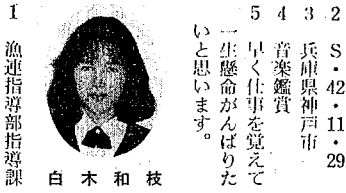 白木和枝
1 漁連指導部指導課
2 S・42・11・29
3 兵庫県神戸市
4 音楽鑑賞
5 早く仕事を覚えて
一生懸命がんばりた
いと思います。